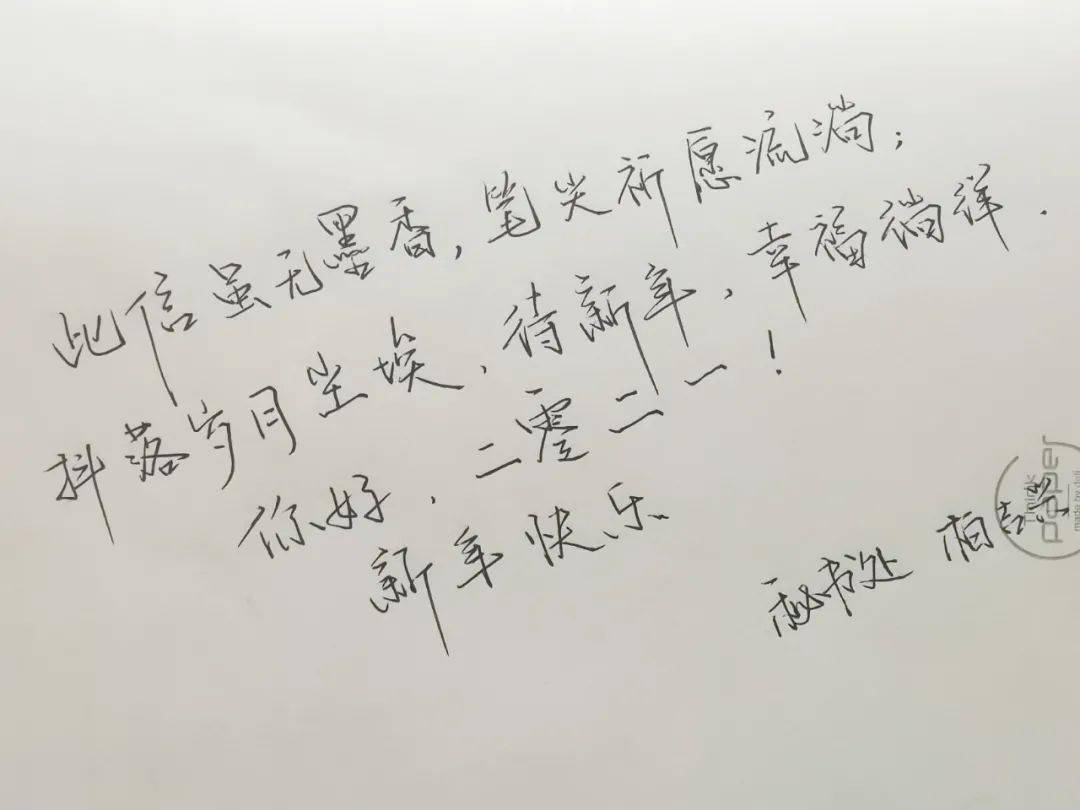 此信虽无墨香，笔尖祈愿流淌；
抖落岁月尘埃，待新年，幸福徜徉.
你好，二零二一！
新年快乐
秘书处 柏
Think
paper
made by deli